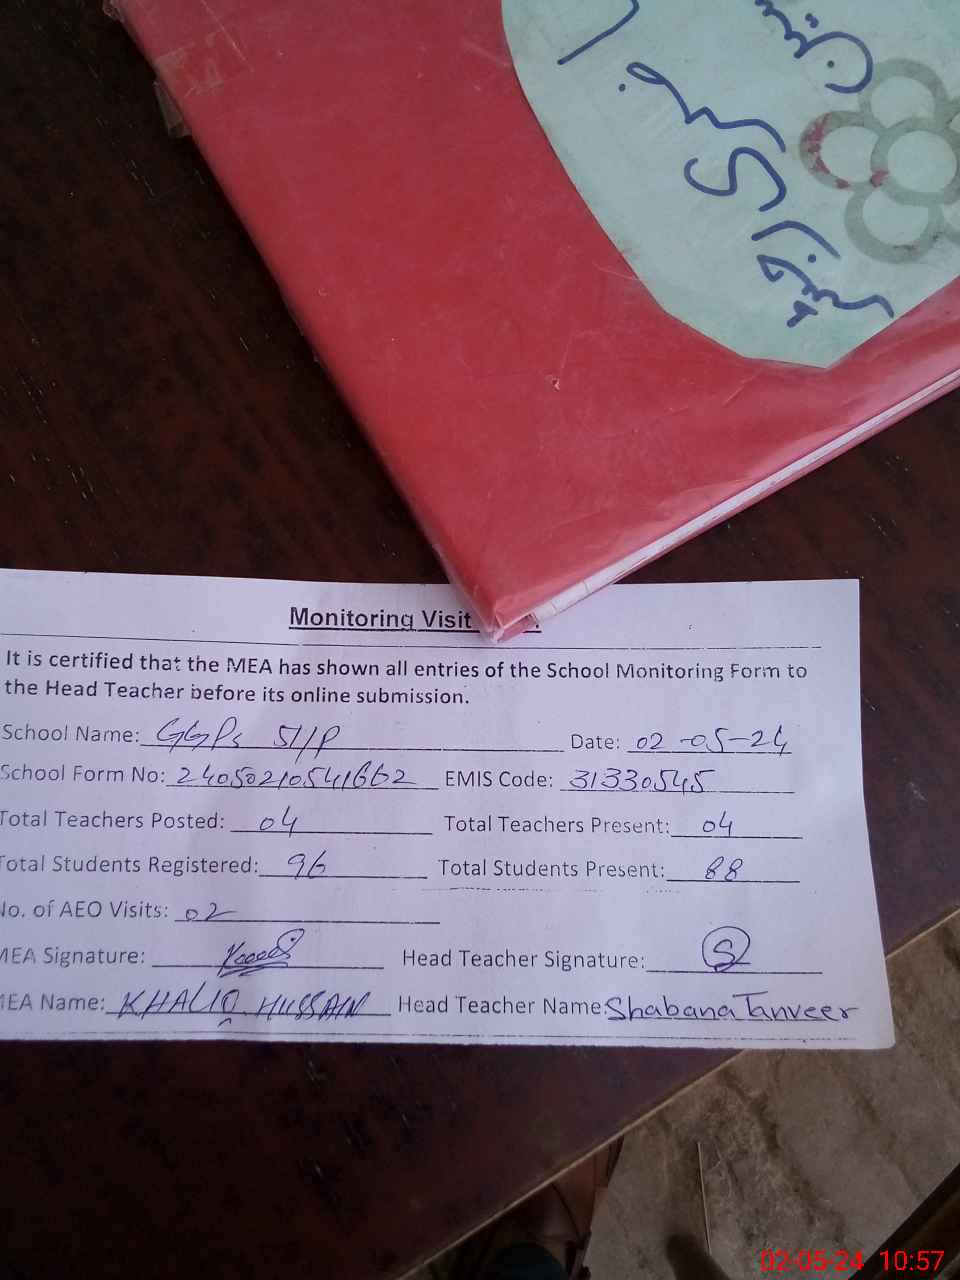 Monitoring Visit
It is certified that the MEA has shown all entries of the School Monitoring Form to
the Head Teacher before its online submission.
School Name: GGPS 51/P Date: 02-05-24
School Form No: 24050210541662 EMIS Code: 31330545
Total Teachers Posted: 04 Total Teachers Present: 04
Total Students Registered: 96 Total Students Present: 88
No. of AEO Visits: 02
MEA Signature: Head Teacher Signature: S
MEA Name: KHALIQ HUSSAIN Head Teacher Name: Shabana Tanveer
02-05-24 10:57